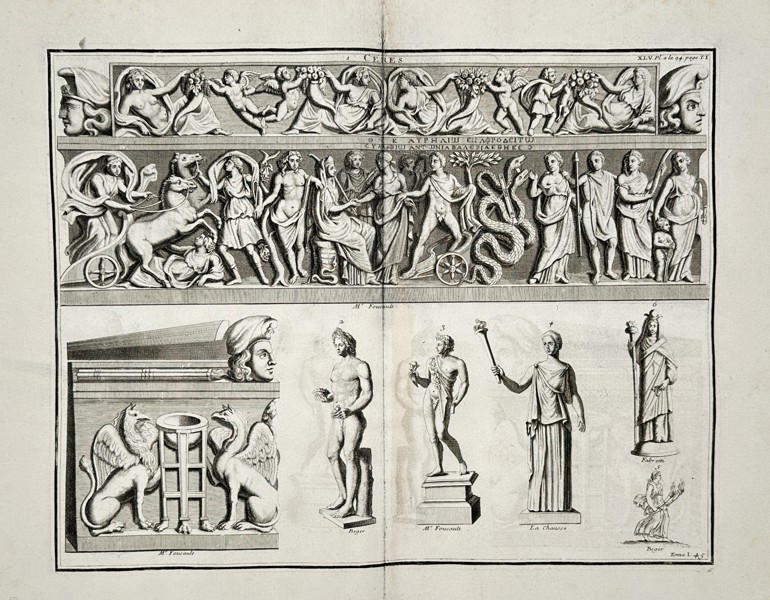 1 CERES
XLV. Pl. a la 94. page T. I
Θ · Κ ΑΥΡΗΛΙΩ ΕΠΑΦΡΟΔΕΙΤΩ
ΑΝΤΩΝΙΑ ΒΑΛΕΡΙΑ ΕΘΗΚΕ
Mr. Foucault
2
3
4
6
Fabretti
5
Beger
Mr. Foucault
La Chausse
Beger
Mr. Foucault
Tome I. 45